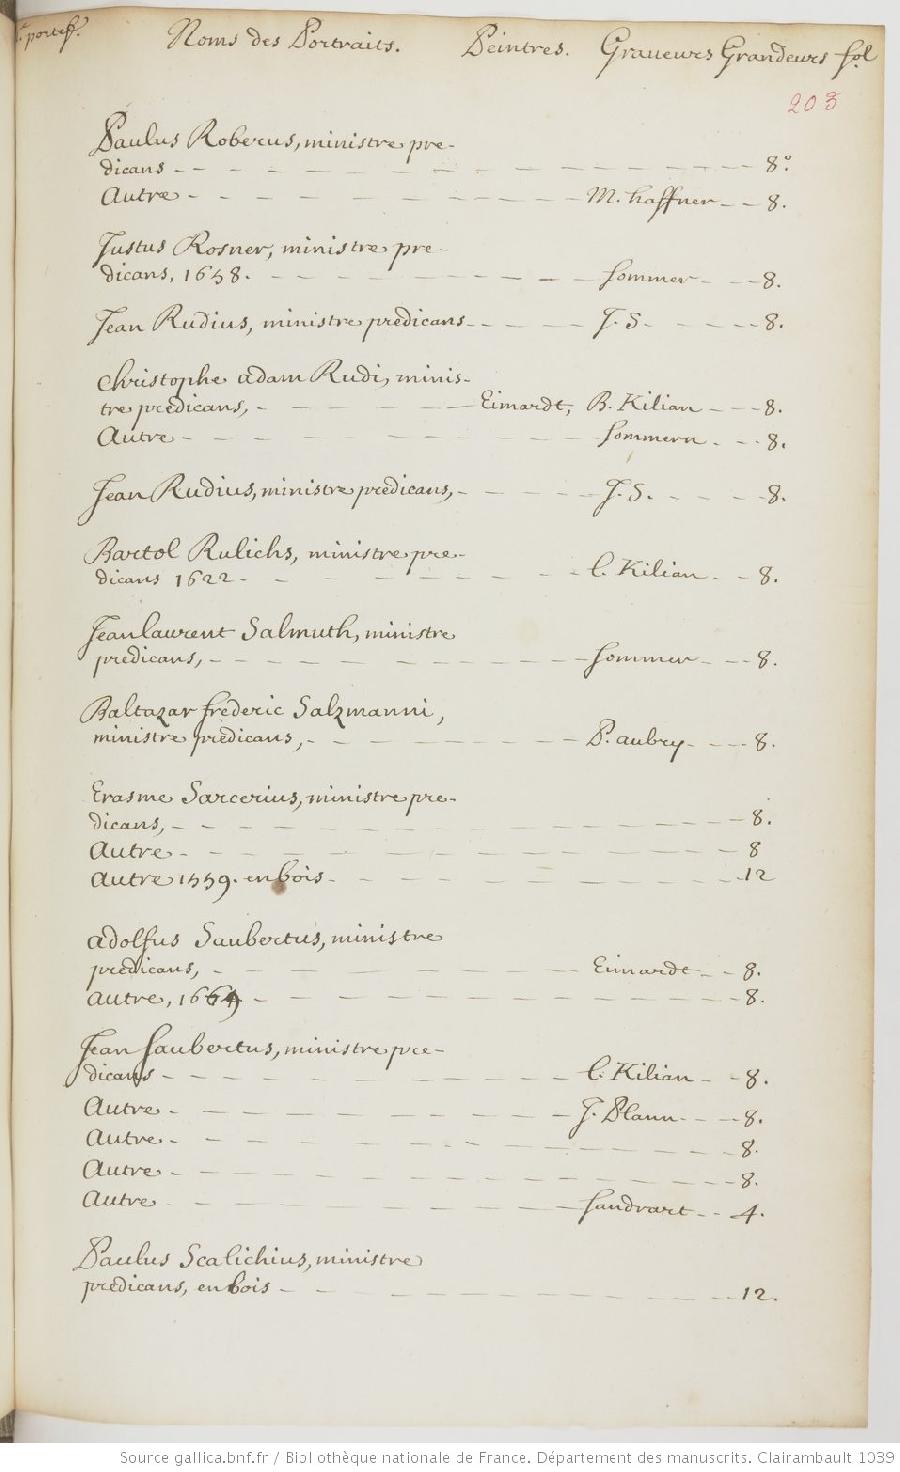 portef.
Noms des Portraits. Peintres. Graveurs Grandeurs fol
203
Paulus Roberus, ministre pre-
dicans - 8.º
Autre - M. haffner - 8.
Justus Rosner, ministre pre
dicans, 1658. - Sommer - 8.
Jean Rudius, ministre predicans - J. S. - 8.
Christophe adam Rudi, minis-
tre predicans, - Eimardt, B. Kilian - 8.
Autre - Sommern - 8.
Jean Rudius, ministre predicans, - J. S. - 8.
Bartol Rulichs, ministre pre-
dicans 1622 - l. Kilian - 8.
Jean laurent Salmuth, ministre
predicans, - Sommer - 8.
Baltazar frederic Salzmanni,
ministre predicans, - P. aubry - 8.
Erasme Sarcerius, ministre pre-
dicans, - 8.
Autre - 8
Autre 1559. en bois - 12
adolfus Saubertus, ministre
predicans, - Eimardt - 8.
autre, 1669 - 8.
Jean Saubertus, ministre pre-
dicans - l. Kilian - 8.
Autre - J. Plann - 8.
Autre - 8.
Autre - 8.
Autre - Sandrart - 4.
Paulus Scalichius, ministre
predicans, en bois - 12.
Source gallica.bnf.fr / Bibliothèque nationale de France. Département des manuscrits. Clairambault 1039